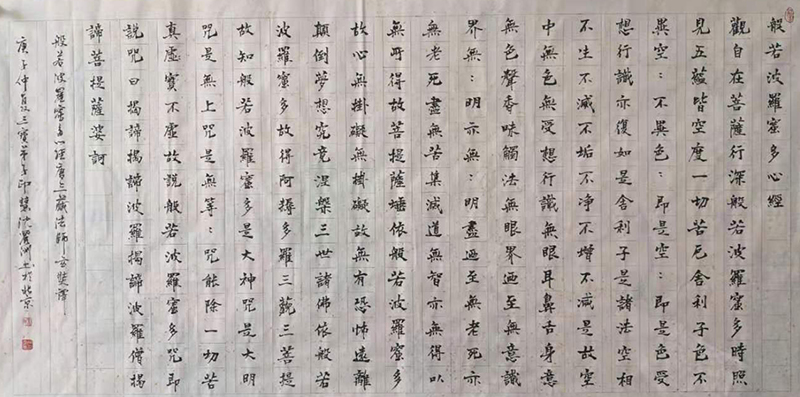 般若波羅蜜多心經
觀自在菩薩行深般若波羅蜜多時照
見五蘊皆空度一切苦厄舍利子色不
異空：不異色：即是空：即是色受
想行識亦復如是舍利子是諸法空相
不生不滅不垢不淨不增不減是故空
中無色無受想行識無眼耳鼻舌身意
無色聲香味觸法無眼界迺至無意識
界無：明亦無：明盡迺至無老死亦
無老死盡無苦集滅道無智亦無得以
無所得故菩提薩埵依般若波羅蜜多
故心無掛礙無掛礙故無有恐怖遠離
顛倒夢想究竟涅槃三世諸佛依般若
波羅蜜多故得阿耨多羅三藐三菩提
故知般若波羅蜜多是大神咒是大明
咒是無上咒是無等：咒能除一切苦
真實不虛故說般若波羅蜜多咒即
說咒曰揭諦揭諦波羅揭諦波羅僧揭
諦菩提薩婆訶
般若波羅蜜多心經唐三藏法師玄奘譯
庚子仲夏三寶弟子印慧沈於北京